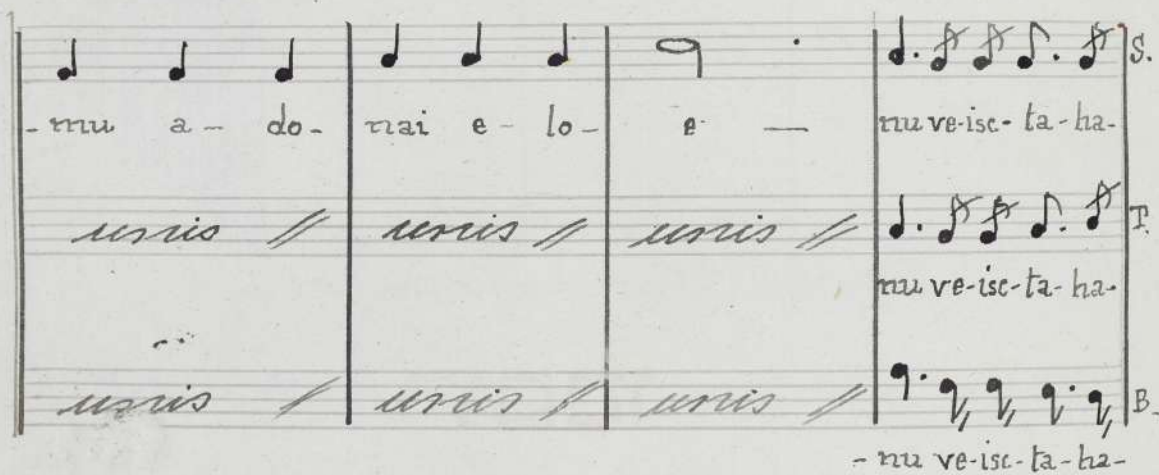 S.
- mu a - do - nai e - lo - e — nu ve-isc-ta-ha-
unis unis unis T.
nu ve-isc-ta-ha-
unis unis unis B.
- nu ve-isc-ta-ha-